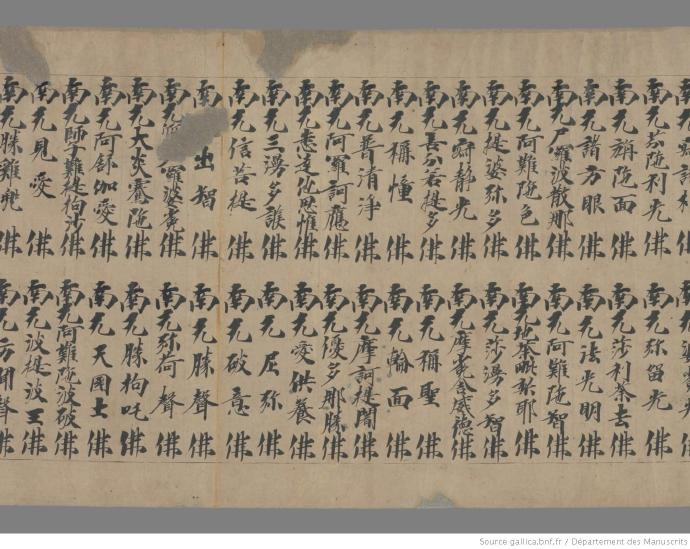 南无芬陁利光佛
南无稱陁面佛
南无諸方眼佛
南无尸羅波散那佛
南无阿難陁色佛
南无提婆弥多佛
南无寂静光佛
南无善分若提多佛
南无稱憧佛
南无普清淨佛
南无阿羅訶應佛
南无悉達他思惟佛
南无三湯多護佛
南无信菩提佛
南 出智佛
南无 羅婆 佛
南无大炎養陁佛
南无阿舒伽愛佛
南无師子難提拘沙佛
南无見愛佛
南无勝難兜佛
南无弥留光佛
南无莎利荼去佛
南无法光明佛
南无阿難陁智佛
南无地荼毗弥耶佛
南无莎湯多智佛
南无摩 舍威德佛
南无稱聖佛
南无輪面佛
南无摩訶提闍佛
南无優多那勝佛
南无愛供養佛
南无屈弥佛
南无破意佛
南无勝聲佛
南无弥荷聲佛
南无勝拘吒佛
南无天國土佛
南无阿難陁波破佛
南无波提波王佛
南无方聞聲佛
Source gallica.bnf.fr / Département des Manuscrits